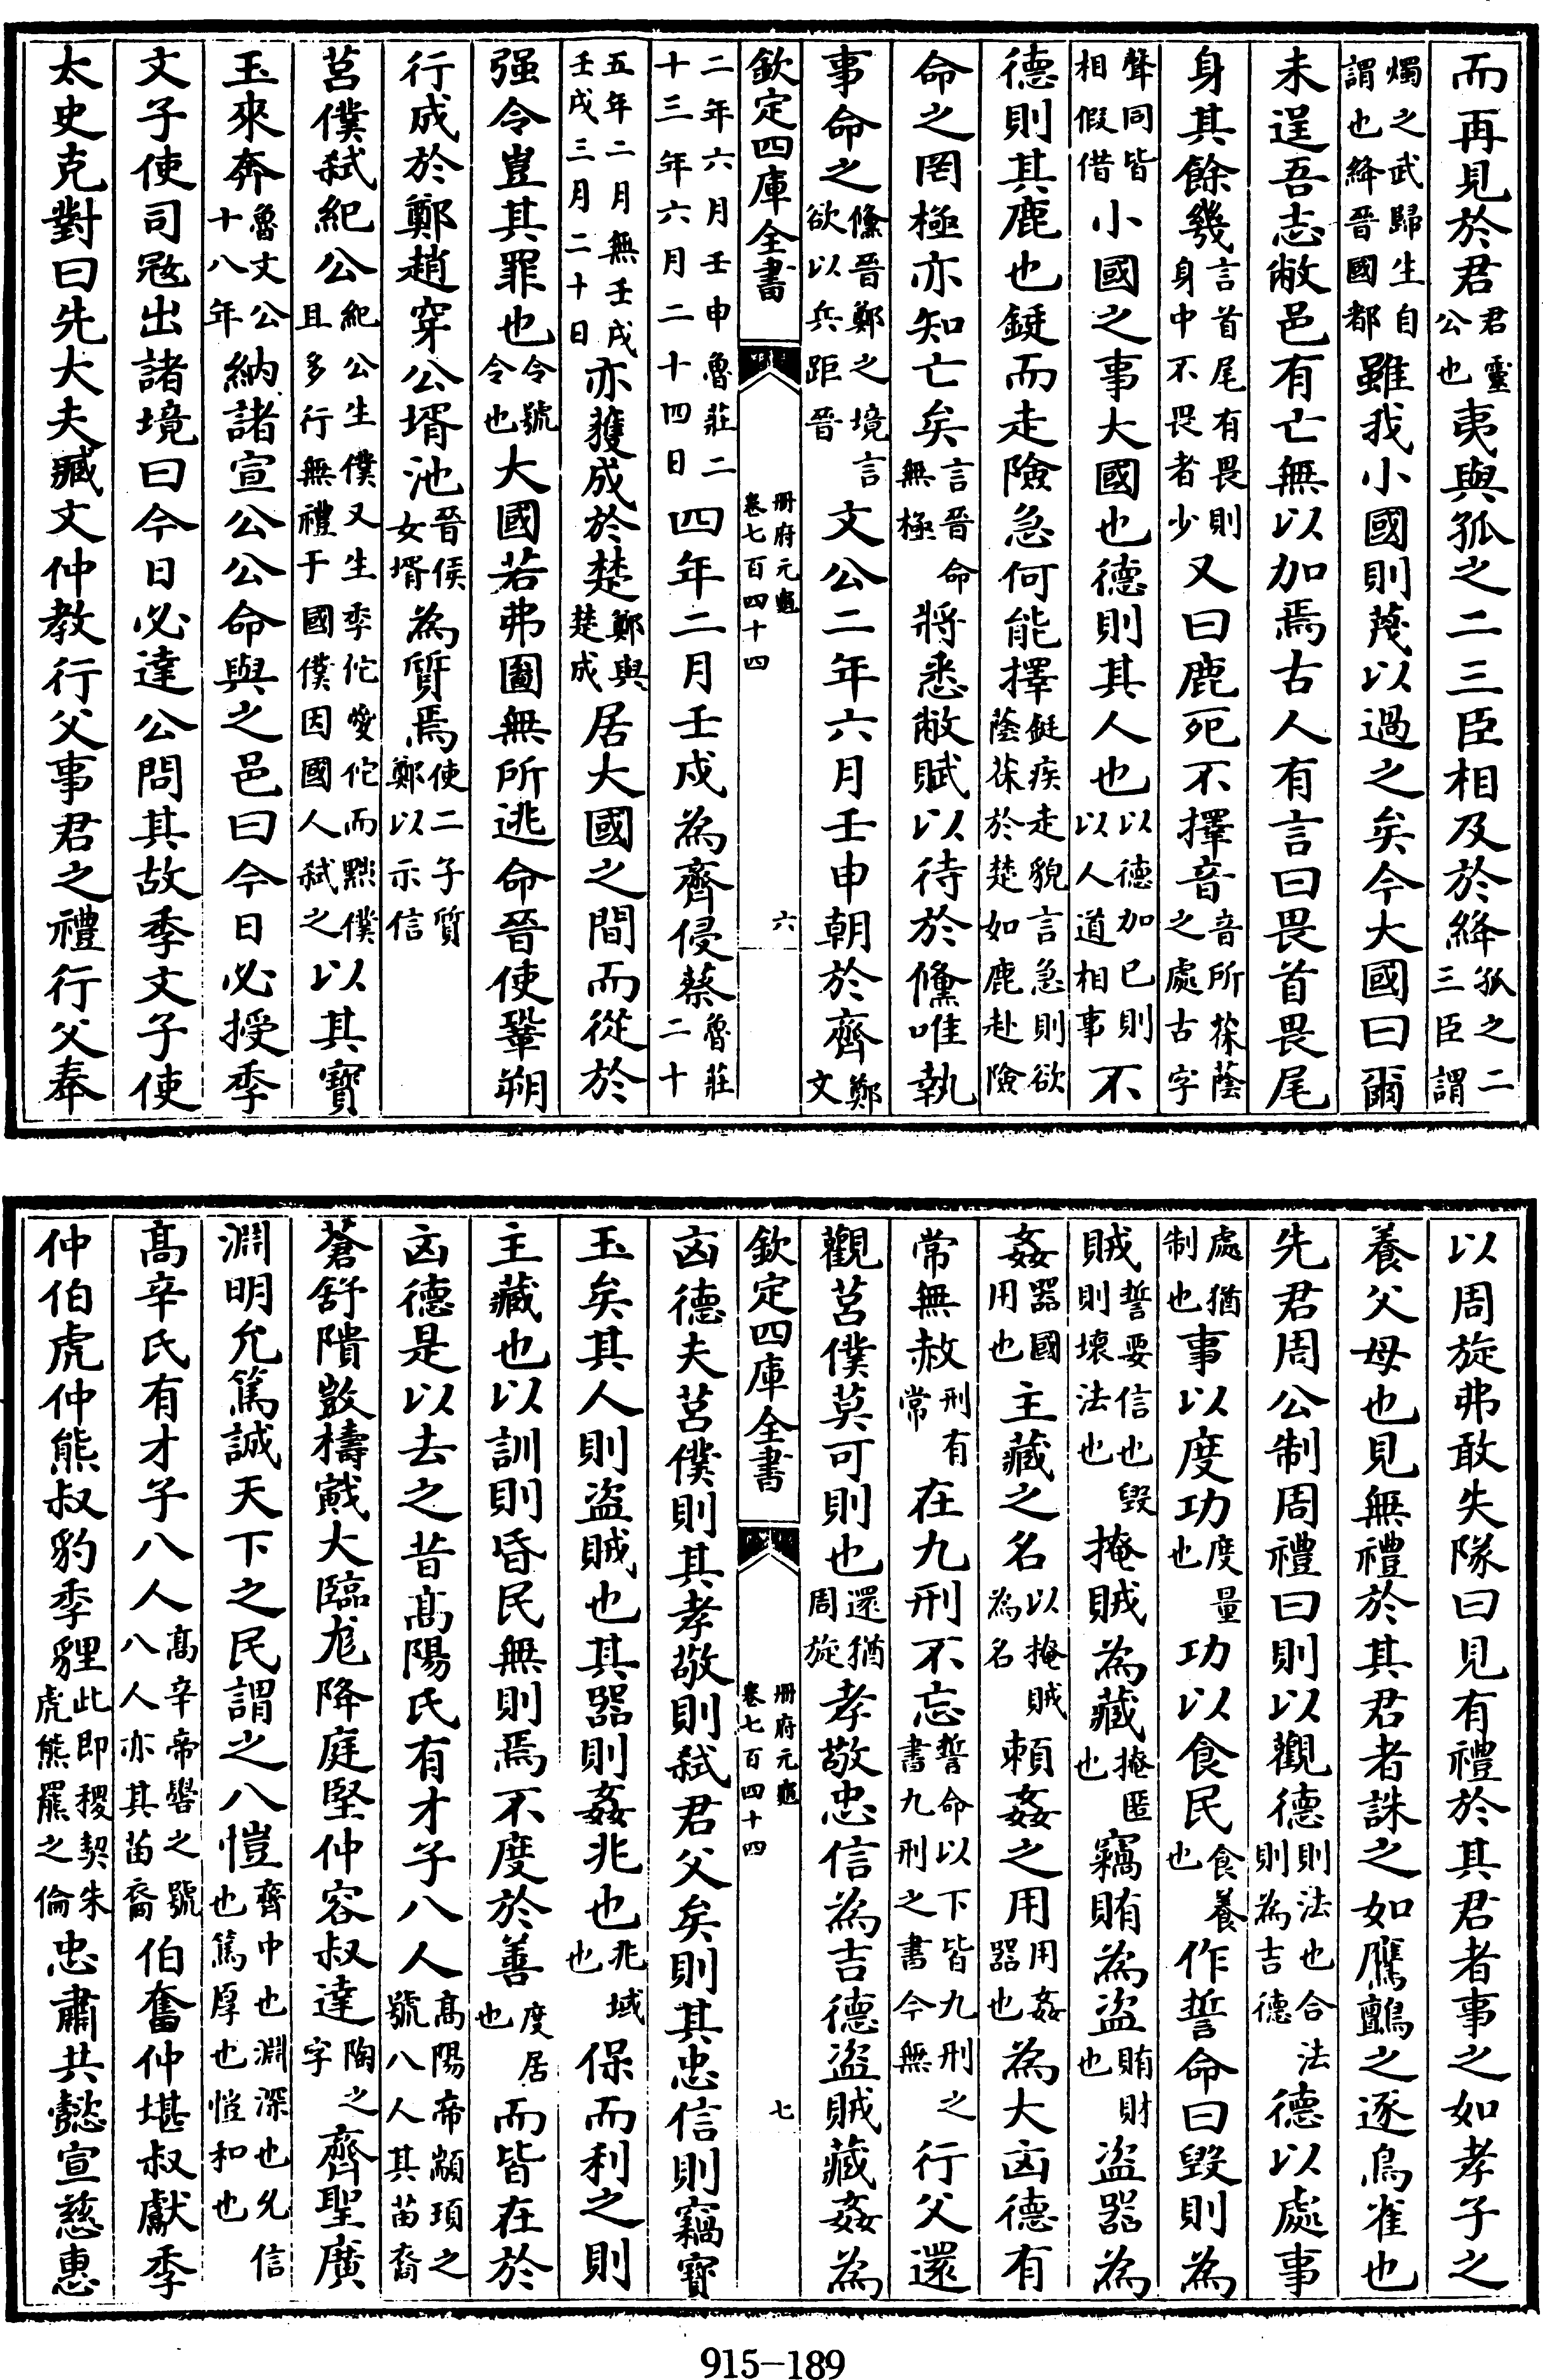 而再見於君君靈公也夷與孤之二三臣相及於絳孤之二三臣謂
燭之武歸生自謂也絳晉國都雖我小國則蔑以過之矣今大國曰爾
未逞吾志敝邑有亡無以加焉古人有言曰畏首畏尾
身其餘幾言首尾有畏則身中不畏者少又曰鹿死不擇音音所茠蔭之處古字
聲同皆相假借小國之事大國也德則其人也以德加已則以人道相事不
德則其鹿也鋌而走險急何能擇鋌疾走貌言急則欲蔭茠於楚如鹿赴險
命之罔極亦知亡矣言晉命無極將悉敝賦以待於鯈唯執
事命之鯈晉鄭之境言欲以兵距晉文公二年六月壬申朝於齊鄭文
欽定四庫全書
冊府元龜
卷七百四十四
六
二年六月壬申魯莊二十三年六月二十四日四年二月壬戌為齊侵蔡魯莊二十
五年二月無壬戌壬戌三月二十日亦獲成於楚鄭與楚成居大國之間而從於
强令豈其罪也令號令也大國若弗圖無所逃命晉使鞏朔
行成於鄭趙穿公壻池晉侯女壻為質焉使二子質鄭以示信
莒僕弑紀公紀公生僕又生季佗愛佗而黜僕且多行無禮于國僕因國人弑之以其寶
玉來奔魯文公十八年納諸宣公公命與之邑曰今日必授季
文子使司冦出諸境曰今日必達公問其故季文子使
太史克對曰先大夫臧文仲教行父事君之禮行父奉
以周旋弗敢失隊曰見有禮於其君者事之如孝子之
養父母也見無禮於其君者誅之如鷹鸇之逐鳥雀也
先君周公制周禮曰則以觀德則法也合法則為吉德德以處事
處猶制也事以度功度量也功以食民食養也作誓命曰毀則為
賊誓要信也毀則壞法也掩賊為藏掩匿也竊賄為盗賄財也盗器為
姦器國用也主藏之名以掩賊為名頼姦之用用姦器也為大凶德有
常無赦刑有常在九刑不忘誓命以下皆九刑之書九刑之書今無行父還
觀莒僕莫可則也還猶周旋孝敬忠信為吉德盗賊藏姦為
欽定四庫全書
冊府元龜
卷七百四十四
七
凶德夫莒僕則其孝敬則弑君父矣則其忠信則竊寶
玉矣其人則盗賊也其器則姦兆也兆域也保而利之則
主藏也以訓則昏民無則焉不度於善度居也而皆在於
凶德是以去之昔髙陽氏有才子八人髙陽帝顓頊之號八人其苗裔
蒼舒隤敳檮戭大臨尨降庭堅仲容叔達陶之字齊聖廣
淵明允篤誠天下之民謂之八愷齊中也淵深也允信也篤厚也愷和也
髙辛氏有才子八人髙辛帝嚳之號八人亦其苗裔伯奮仲堪叔獻季
仲伯虎仲熊叔豹季貍此即稷契朱虎熊羆之倫忠肅共懿宣慈惠
915-189